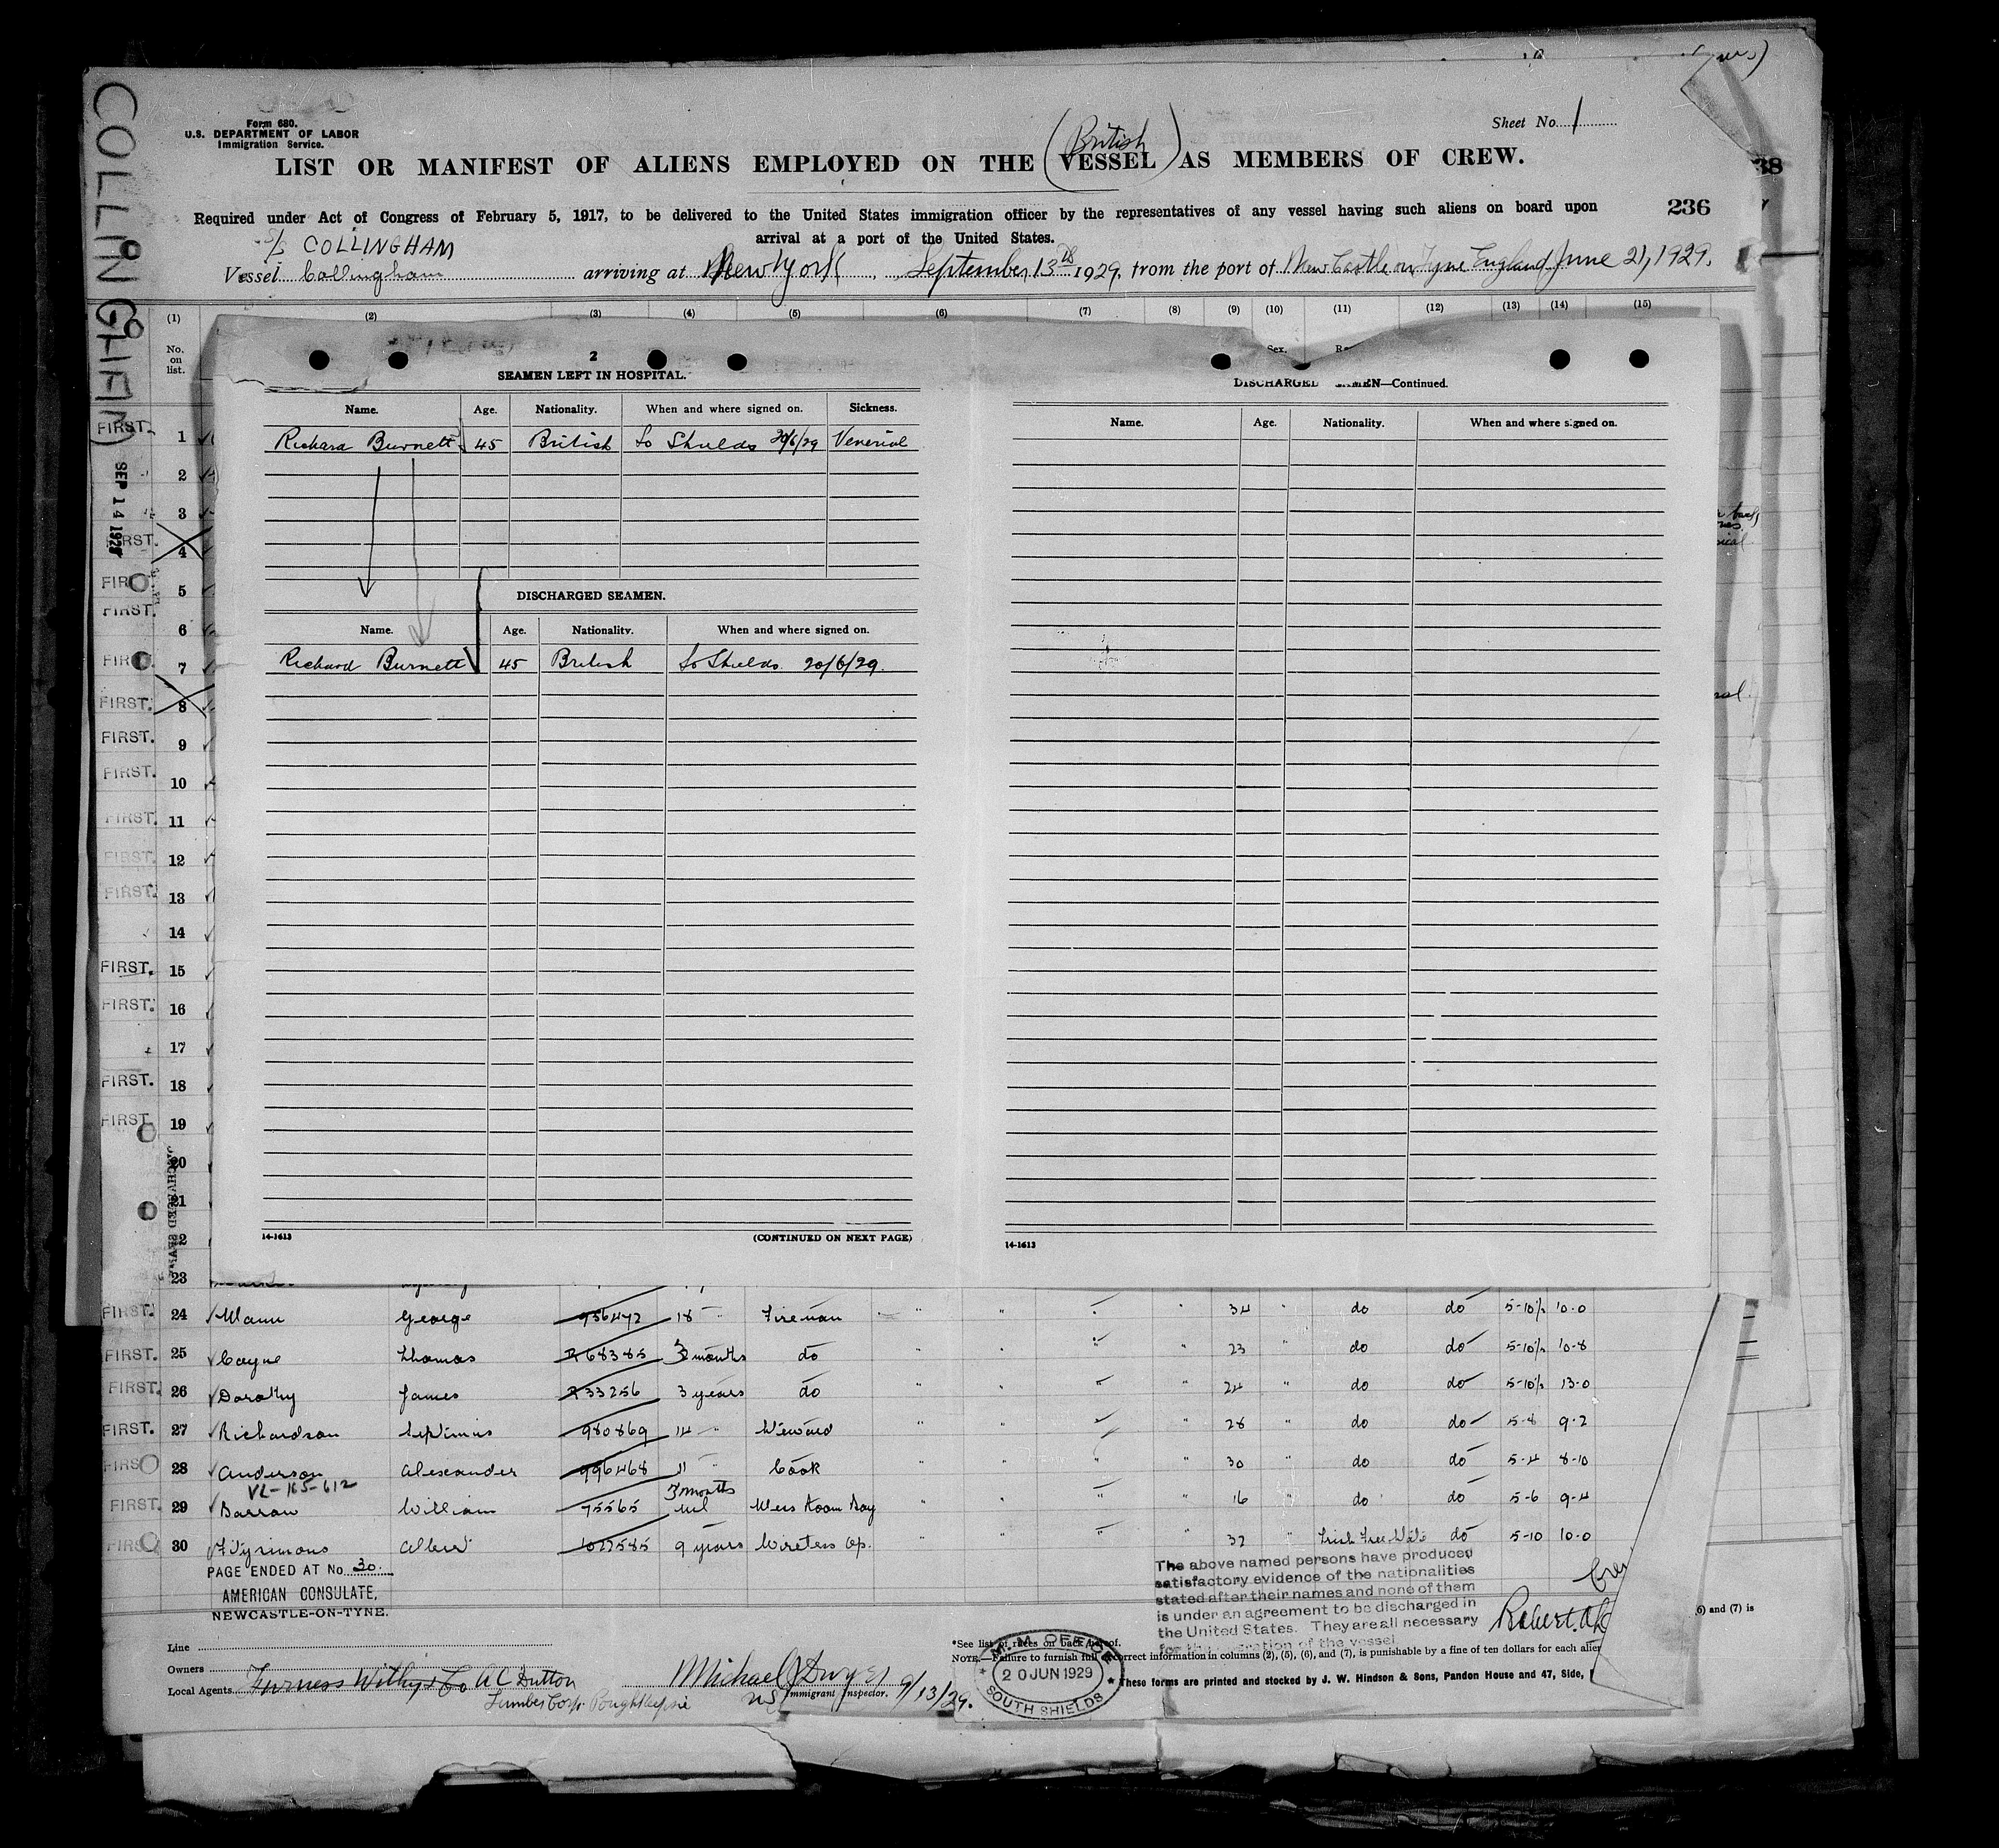 COLLINGHAM
Form 680.
U.S. DEPARTMENT OF LABOR
Immigration Service.
Sheet No. 1
(British)
LIST OR MANIFEST OF ALIENS EMPLOYED ON THE VESSEL AS MEMBERS OF CREW.
38
236
Required under Act of Congress of February 5, 1917, to be delivered to the United States immigration officer by the representatives of any vessel having such aliens on board upon
arrival at a port of the United States.
S/S COLLINGHAM
Vessel Collingham arriving at New York September 13th 1929, from the port of New Castle on Tyne England June 21, 1929.
(1) (2) (3) (4) (5) (6) (7) (8) (9) (10) (11) (12) (13) (14) (15)
No. on list.
Sex.
2
SEAMEN LEFT IN HOSPITAL.
Name. Age. Nationality. When and where signed on. Sickness.
Richard Burnett 45 British So Shields 20/6/29 Venerial
DISCHARGED SEAMEN.
Name. Age. Nationality. When and where signed on.
Richard Burnett 45 British So Shields. 20/6/29.
14-1613 (CONTINUED ON NEXT PAGE)
DISCHARGED SEAMEN—Continued.
Name. Age. Nationality. When and where signed on.
14-1613
SEP 14 1929
FIRST. 1
2
3
FIRST. 4
FIRST. 5
FIRST. 6
FIRST. 7
FIRST. 8
FIRST. 9
FIRST. 10
FIRST. 11
FIRST. 12
FIRST. 13
14
FIRST. 15
FIRST. 16
17
FIRST. 18
FIRST. 19
20
21
23
FIRST. 24 Mann George 956472 18 " Fireman " " " " 34 " do do 5-10½ 10-0
FIRST. 25 Coyne Thomas R68385 3 months do " " " 23 do do 5-10½ 10-8
FIRST. 26 Dorothy James R33256 3 years do " " " 24 do do 5-10½ 13-0
FIRST. 27 Richardson Septimus 980869 14 " Steward " " " 28 " do do 5-8 9-2
FIRST 28 Anderson Alexander 996468 11 " Cook 30 do do 5-4 8-10
VL-165-612
FIRST. 29 Barrow William 75565 3 months Mess Room Boy " " " " 16 " do do 5-6 9-4
FIRST 30 Fitzsimons Albert 1022585 9 years Wireless Op. " " " " 32 " Irish Free State do 5-10 10-0
PAGE ENDED AT No. 30.
AMERICAN CONSULATE,
NEWCASTLE-ON-TYNE.
The above named persons have produced
satisfactory evidence of the nationalities
stated after their names and none of them
is under an agreement to be discharged in
the United States. They are all necessary
for the operation of the vessel
6) and (7) is
Line
Owners
Local Agents Furness Withy & Co A C Dutton
Lumber Corp. Poughkepsie
Michael J Dwyer
US Immigrant Inspector. 9/13/29.
*See list of races on back hereof.
NOTE.—Failure to furnish full or correct information in columns (2), (5), (6), and (7), is punishable by a fine of ten dollars for each alien
M. M. OFFICE
20 JUN 1929
SOUTH SHIELDS
These forms are printed and stocked by J. W. Hindson & Sons, Pandon House and 47, Side,